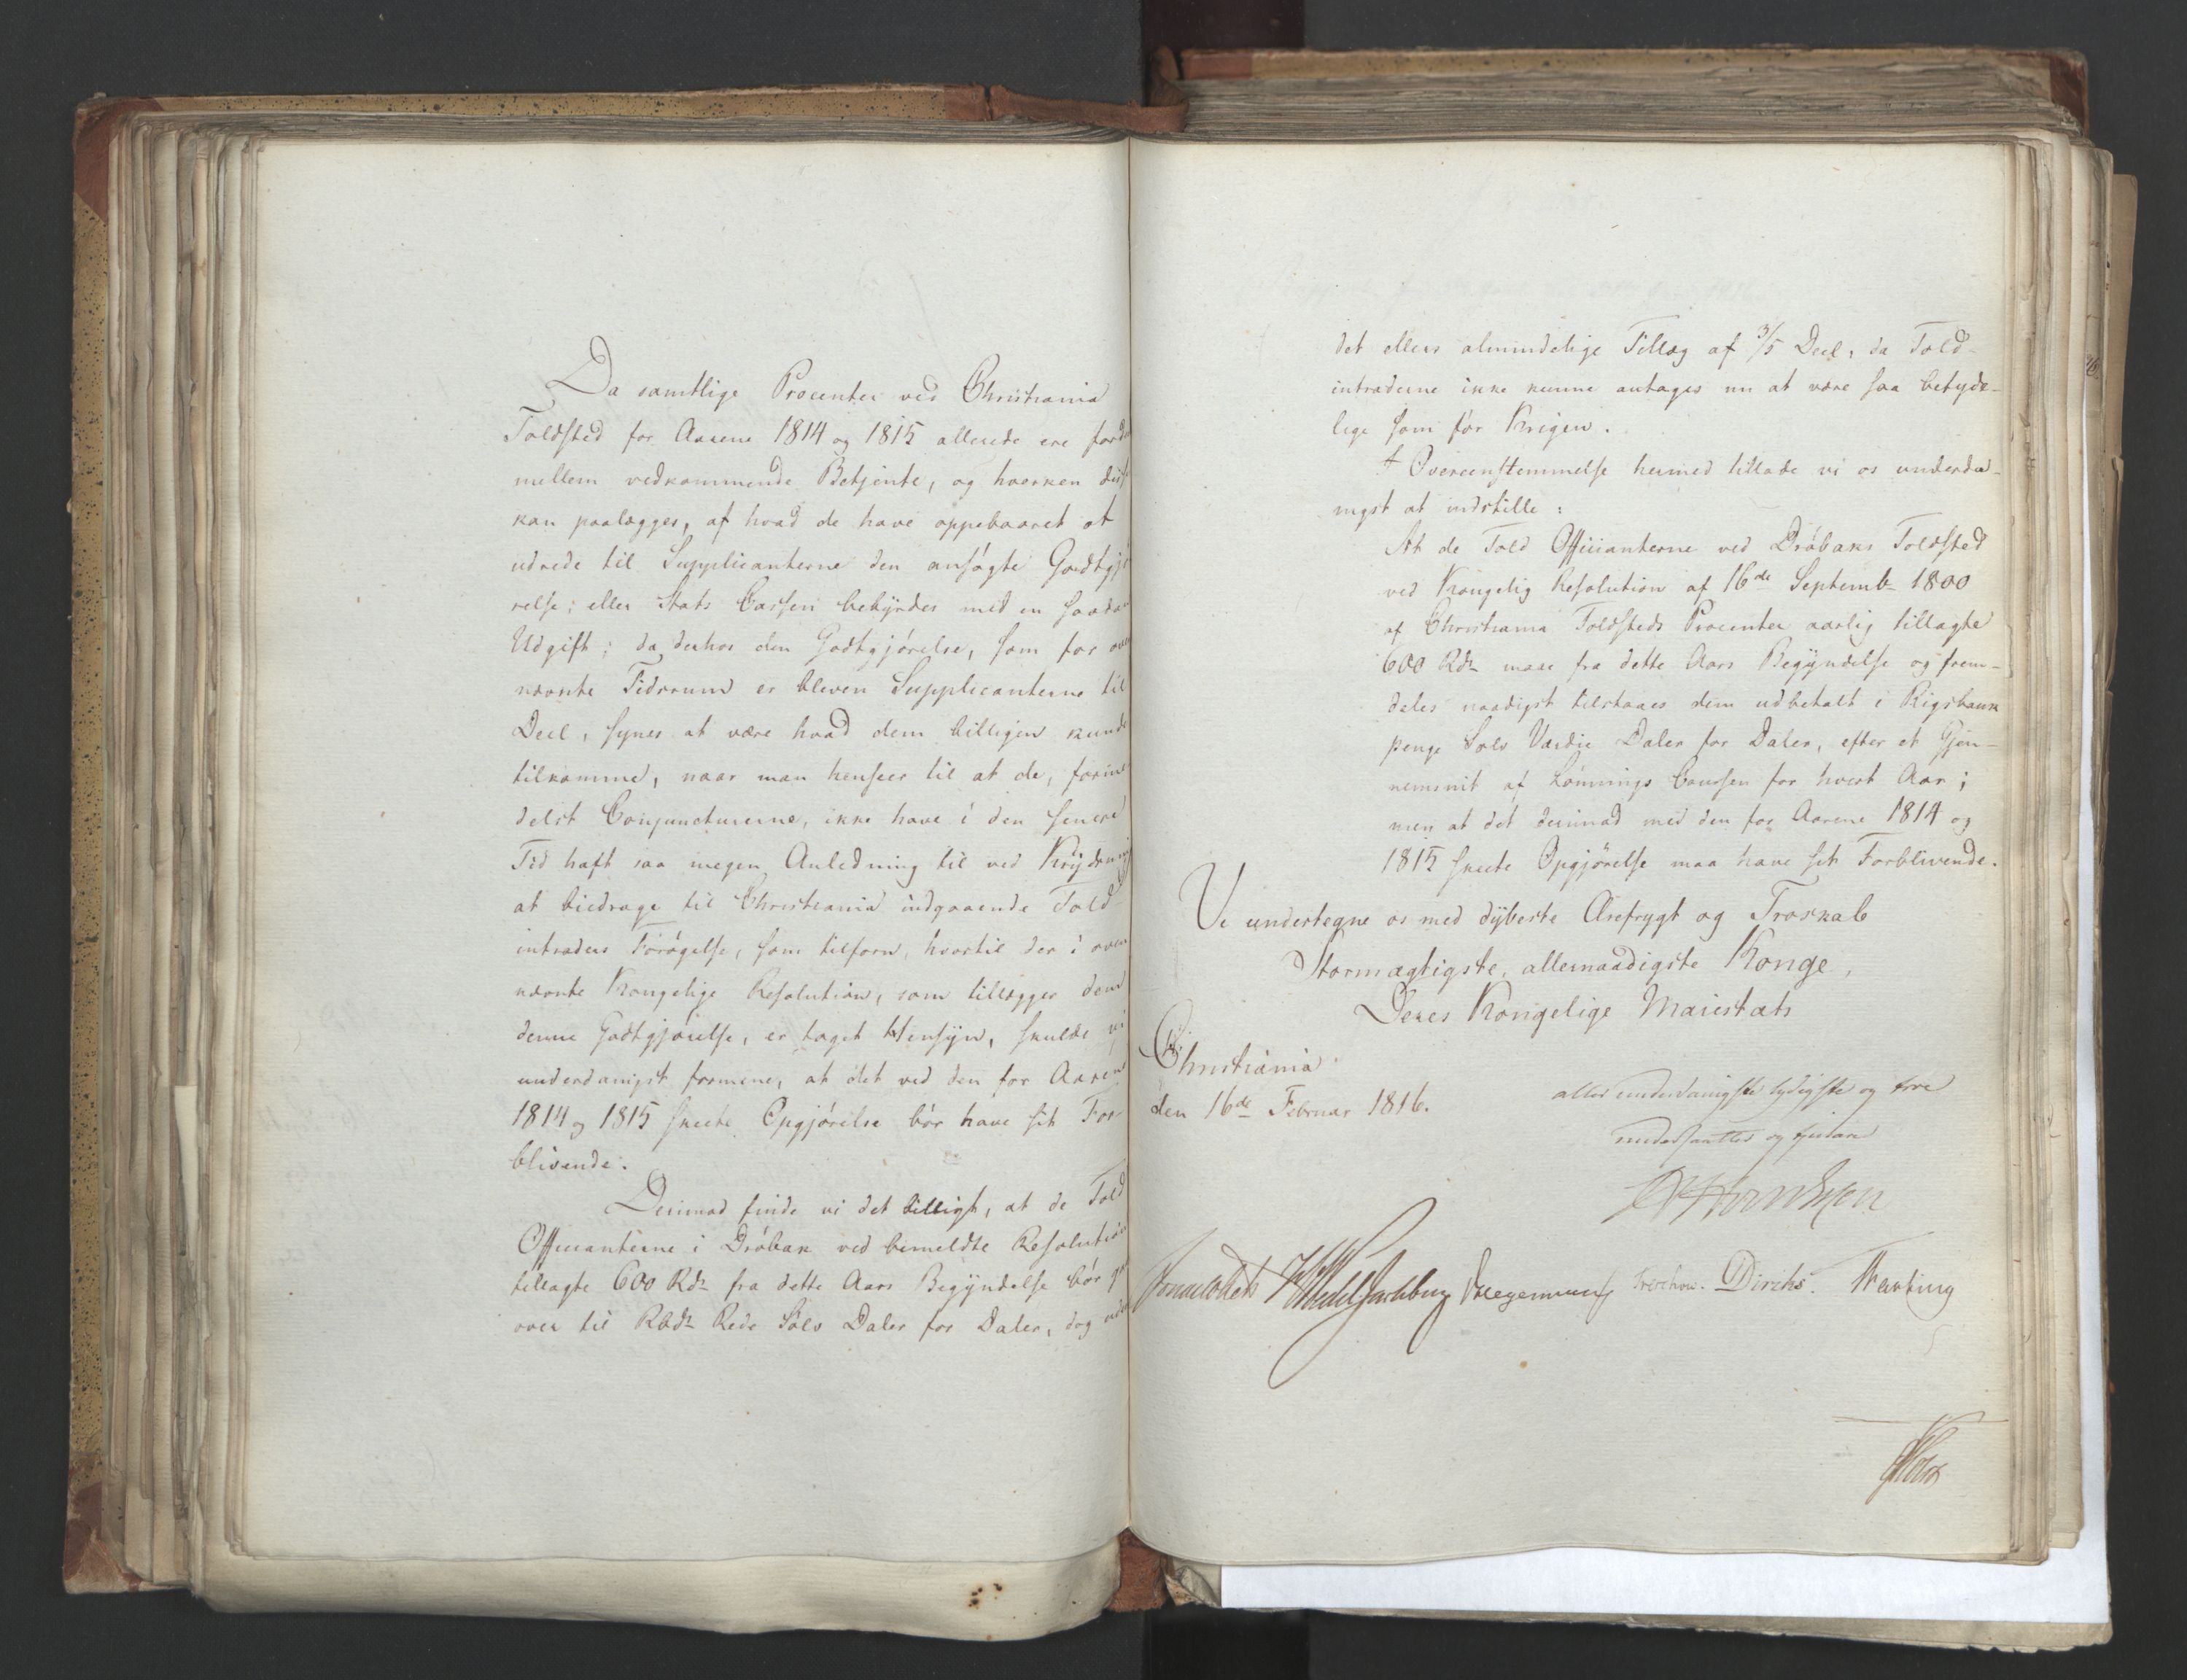 Da samtlige Procenter ved Christiania
Toldsted for Aarene 1814 og 1815 allerede ere fordelte
mellem vedkommende Betjente, og hverken disse
kan paalægges, af hvad de have oppebaaret at
udrede til Supplicanterne den ansøgte Godtgjö
relse; eller Stats Cassen bebyrdes med en saadan
Udgift; da derhos den Godtgjörelse, som for oven
nævnte Tidsrum er bleven Supplicanterne til
Deel, synes at være hvad dem billigen kunde
tilkomme, naar man henseer til at de, formé
delst Conjuncturerne, ikke have i den senere
Tid haft saa megen Anledning til ved Krydsning
at bidrage til Christiania indgaaende Told
intraders Forøgelse, som tilforn, hvortil der i oven
nævnte Kongelige Resolution, som tillægger dem
denne Godtgjörelse, er taget Hensyn, skulde vi
underdanigst formene, at det ved den for Aarene
1814 og 1815 skeete Opgjörelse bör have sit For
blivende.
Derimod finde vi det billigt, at de Told
Officianterne i Dröbak ved bemeldte Resolution
tillagte 600 Rdr fra dette Aars Begyndelse bör
over til Rbdr Rede Sölv Daler for Daler, dog uden
det ellers almindelige Tillæg af 3/5 Deel, da Told-
intraderne ikke kunne antages nu at være saa betyde-
lige som för Krigen.
I Overeensstemmelse hermed tillade vi os underda-
nigst at indstille:
At de Told Officianterne ved Dröbaks Toldsted
ved Kongelig Resolution af 16de Septembr 1800
af Christiania Toldsteds Procenter aarlig tillagte
600 Rdr maae fra dette Aars Begyndelse og frem-
deles naadigst tilstaaes dem udbetalt i Rigsbank
penge Sölv Værdie Daler for Daler, efter et Gjen-
nemsnit af Lönnings Coursen for hvert Aar;
men at det derimod med den for Aarene 1814 og
1815 skeete Opgjörelse maa have sit Forblivende.
Vi undertegne os med dybeste Ærefrygt og Troskab
Stormægtigste, allernaadigste Konge,
Deres Kongelige Maiestæts
Christiania
den 16de Februar 1816.
allerunderdanigste lydigste og troe
undersaatter og tjenere
Wedel Jarlsberg Treschow. Diriks.
Holst